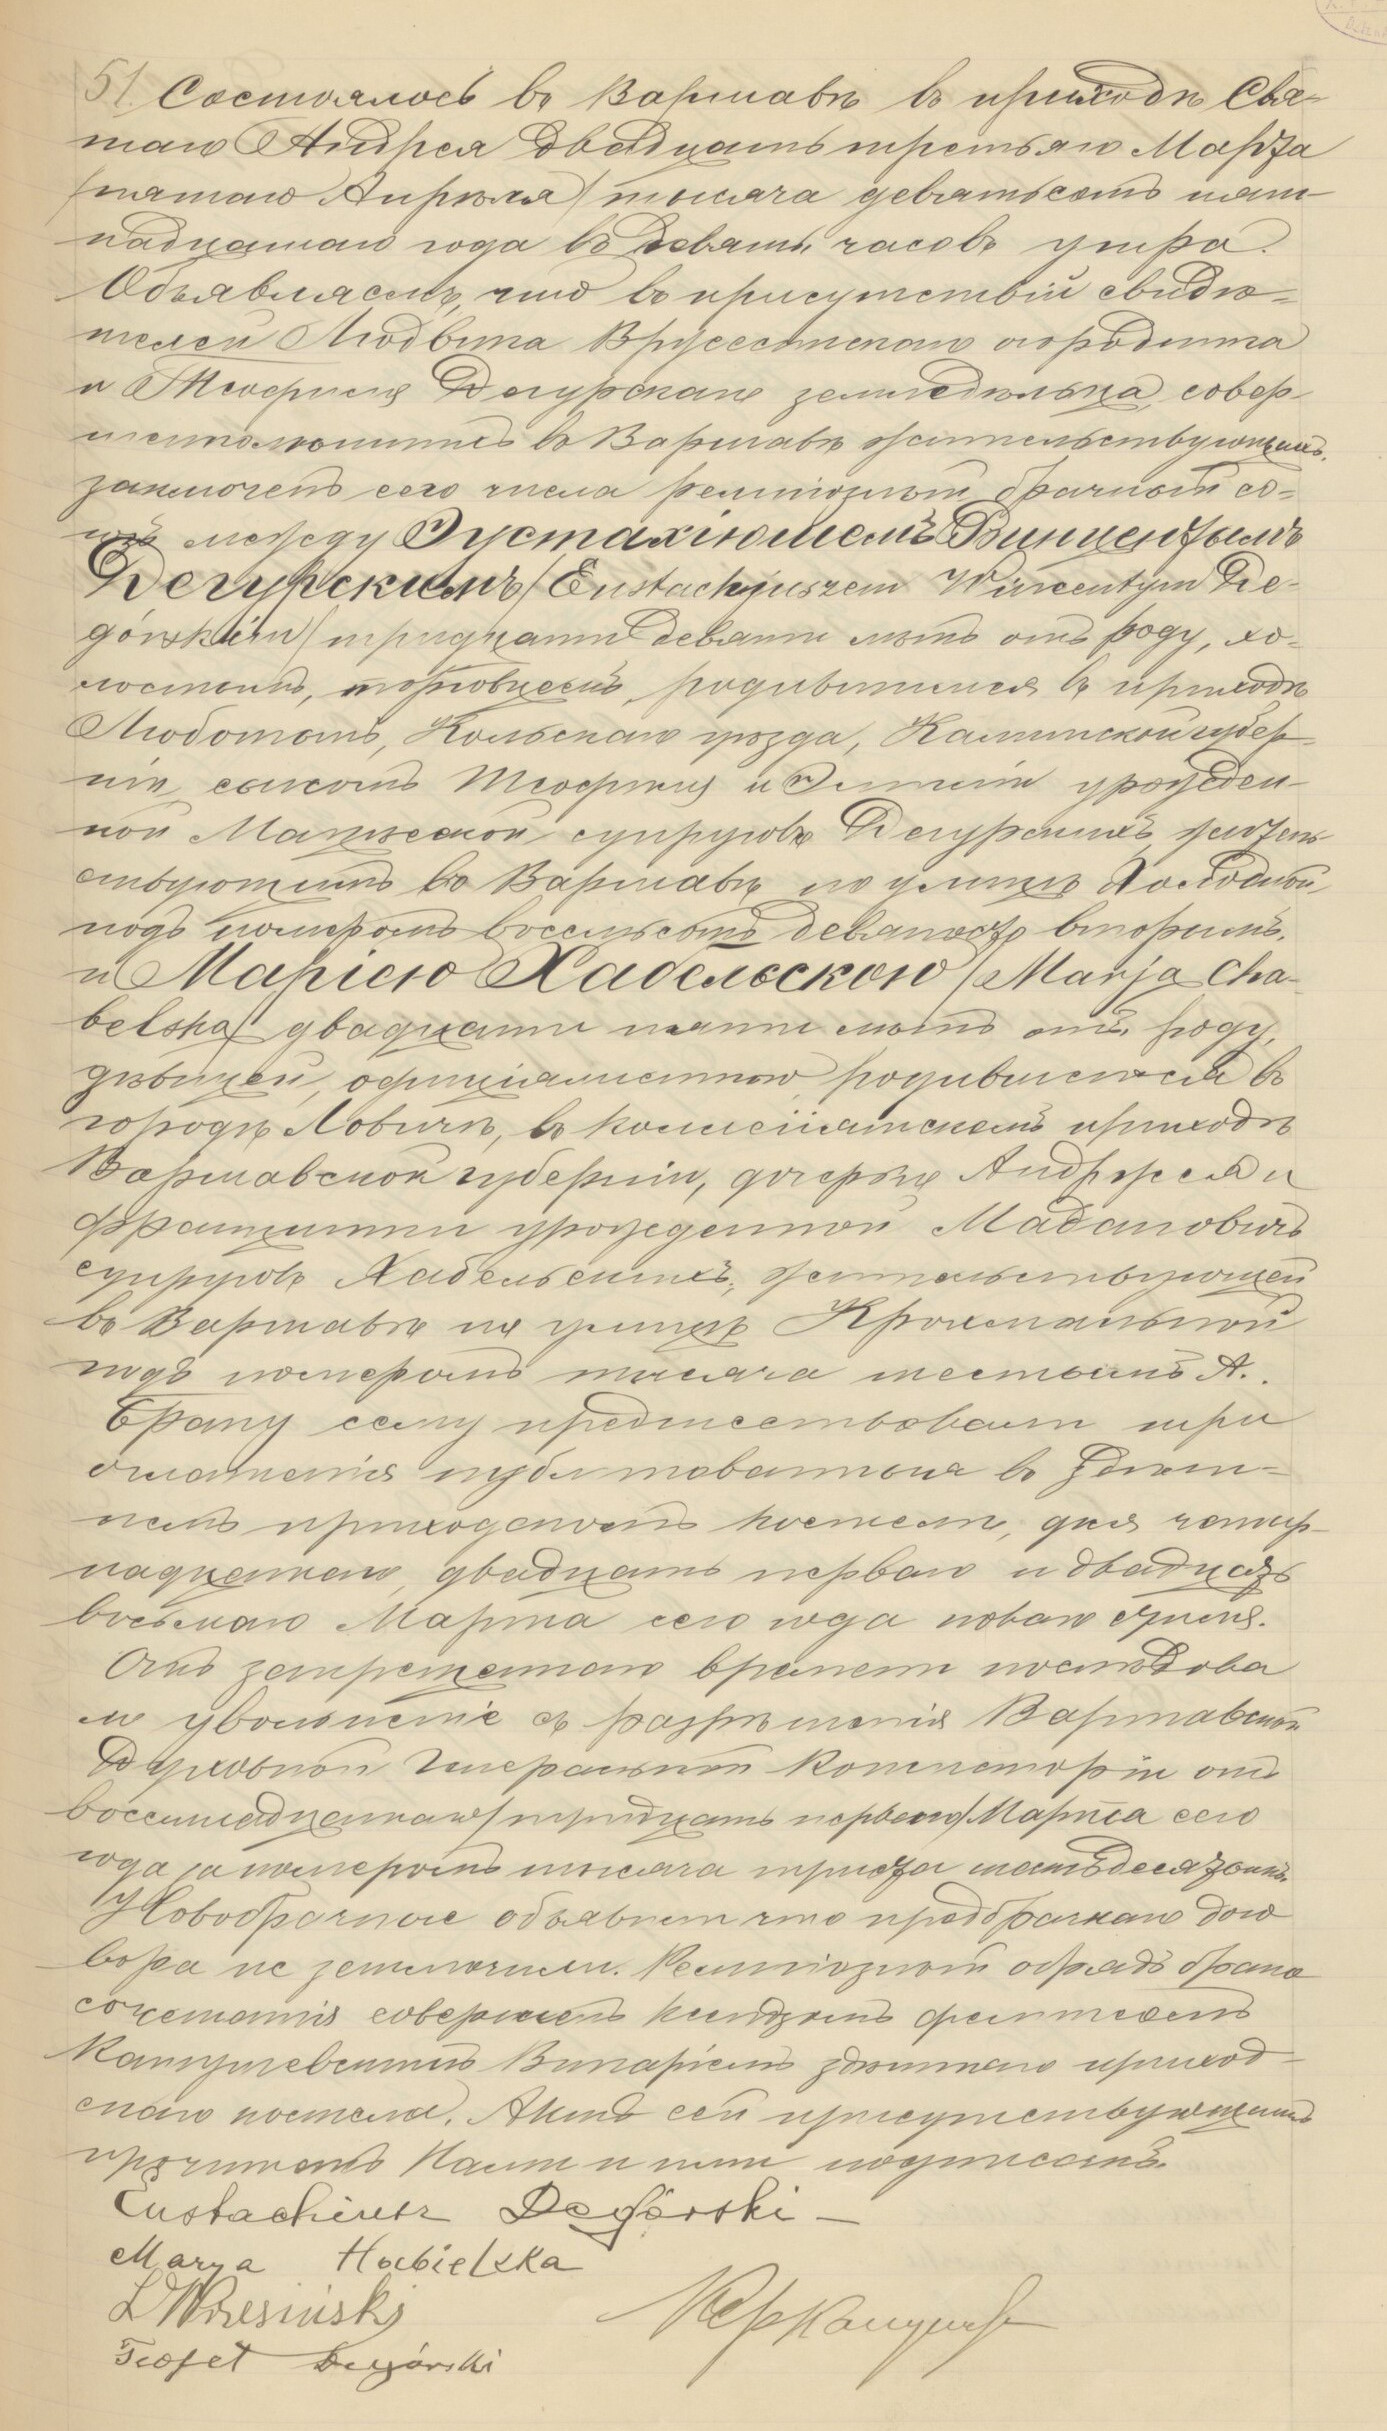 51. Состоялось въ Варшавѣ въ приходѣ Свя-
таго Андрея двадцать третьяго Марта
/пятаго Апрѣля/ тысяча девятьсотъ пят-
надцатаго года въ девять часовъ утра.
Объявляемъ, что въ присутствіи свидѣ-
телей Людвика
и Теофиля Дегурскаго земледѣльца, совер-
шеннолѣтнихъ въ Варшавѣ жительствующихъ,
заключенъ сего числа религіозный брачный со-
юзъ между Эустахіюшемъ Винцентымъ
Дегурскимъ /Eustachjuszem Wincentym De-
górskim/ тридцати девяти лѣтъ отъ роду, хо-
лостымъ, торговцемъ, родившимся въ приходѣ
Люботынь, Кольскаго уѣзда, Калишской губер-
ніи, сыномъ Теофиля и Эмиліи урожден-
ной супруговъ Дегурскихъ, житель-
ствующимъ въ Варшавѣ по улицѣ Холодной
подъ номеромъ восемьсотъ девяносто вторымъ,
и Маріею Хабельскою /Marja Cha-
belska/ двадцати пяти лѣтъ отъ роду,
дѣвицей, оффиціалисткою, родившеюся въ
городѣ Ловичѣ, въ коллегіятскомъ приходѣ
Варшавской губерніи, дочерью Андржея и
Францишки урожденной Маdановичъ
супруговъ Хабельскихъ, жительствующей
въ Варшавѣ на улицѣ Крохмальной
подъ номеромъ тысяча шестымъ А.
Браку сему предшествовали три
оглашенія публикованныя въ здѣш-
немъ приходскомъ костелѣ, дня четыр-
надцатаго, двадцать перваго и двадцать
восьмаго Марта сего года новаго стиля.
Отъ запрещеннаго времени послѣдова-
ло увольненіе съ разрѣшенія Варшавской
Духовной Генеральной Консисторіи отъ
восемнадцатаго/тридцать перваго/Марта сего
года за номеромъ тысяча триста шестьдесятымъ.
Новобрачные объявили что предбрачнаго дого-
вора не заключили. Религіозный обрядъ брако-
сочетанія совершенъ ксендзомъ Феликсомъ
Викаріемъ здѣшняго приход-
скаго костела. Актъ сей присутствующимъ
прочитанъ Нами и ими подписанъ.
Eustachiusz Degórski –
Marya Habielska
L Wrzesiński
Teofil Degórski